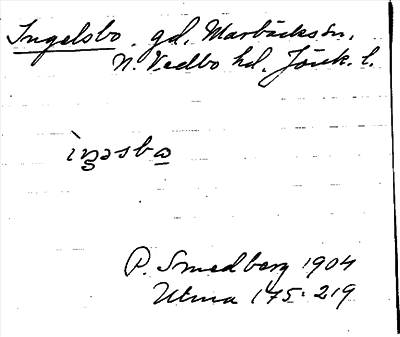 Ingelsbo. gd. Marbäcks sn,
N. Vedbo hd. Jönk. l.
ìŋəsbo
P. Smedberg 1904
Utma 175: 219